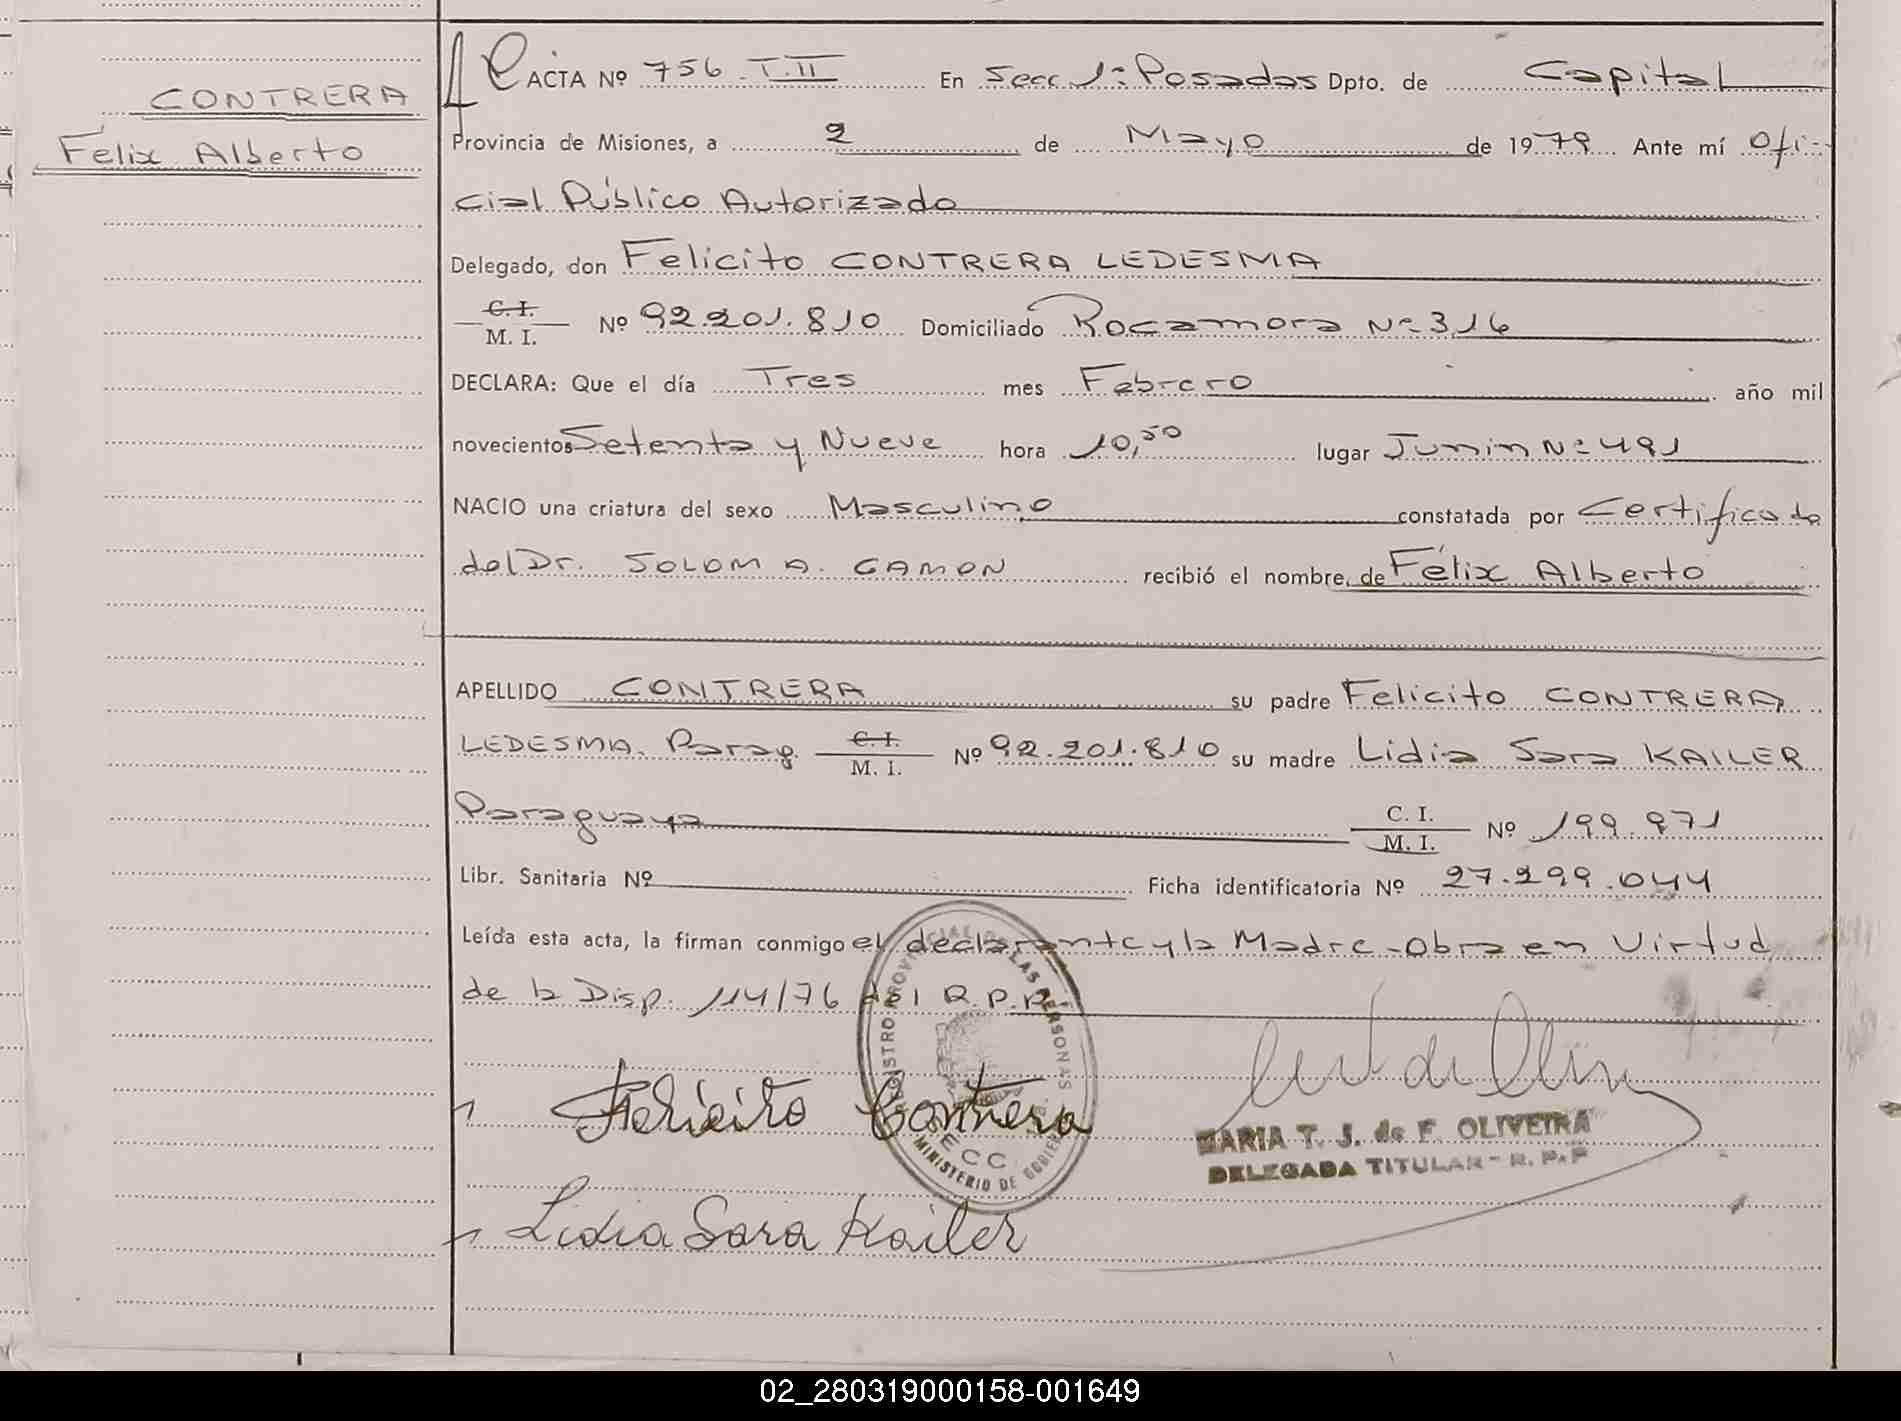 CONTRERA
Félix Alberto
ACTA Nº 756 T.II En Secc 1ª Posadas Dpto. de Capital
Provincia de Misiones, a 2 de Mayo de 1979 Ante mí Ofi-
cial Público Autorizado
Delegado, don Felicito CONTRERA LEDESMA
C. I.
M. I. Nº 92.201.810 Domiciliado Rocamora Nº 316
DECLARA: Que el día Tres mes Febrero año mil
novecientos Setenta y Nueve hora 10,50 lugar Junin Nº 491
NACIO una criatura del sexo Masculino constatada por Certificado
del Dr. SOLOM A. GAMON recibió el nombre de Félix Alberto
APELLIDO CONTRERA su padre Felicito CONTRERA
LEDESMA. Parag. C. I. M. I. Nº 92.201.810 su madre Lidia Sara KAILER
Paraguaya C. I. M. I. Nº 199.971
Libr. Sanitaria Nº Ficha identificatoria Nº 27.299.044
Leída esta acta, la firman conmigo el declarante y la Madre-Obra en Virtud
de la Disp. 114/76 del R.P.P.
REGISTRO PROVINCIAL DE LAS PERSONAS
MINISTERIO DE GOBIERNO
Felicito Contrera
MARIA T. J. de F. OLIVEIRA
DELEGADA TITULAR - R. P. P
Lidia Sara Kailer
02_280319000158-001649